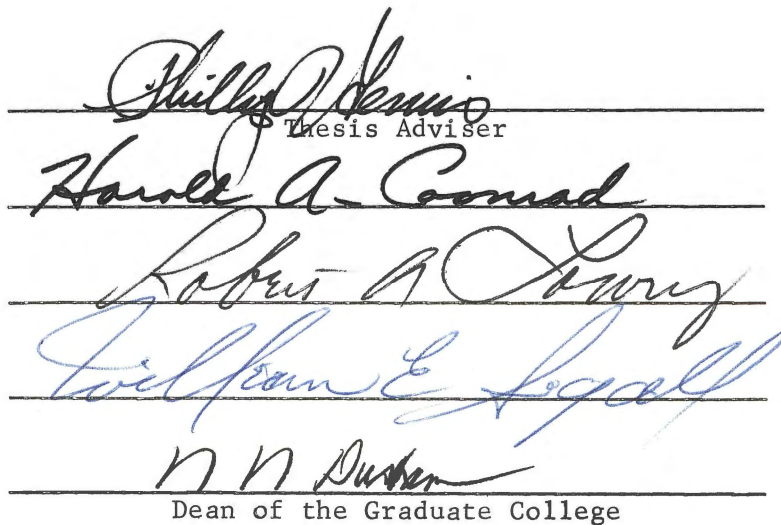 Phillip
Thesis Adviser
Harold A. Coonrad
Robert A Lowry
William E Segall
N N Durham
Dean of the Graduate College